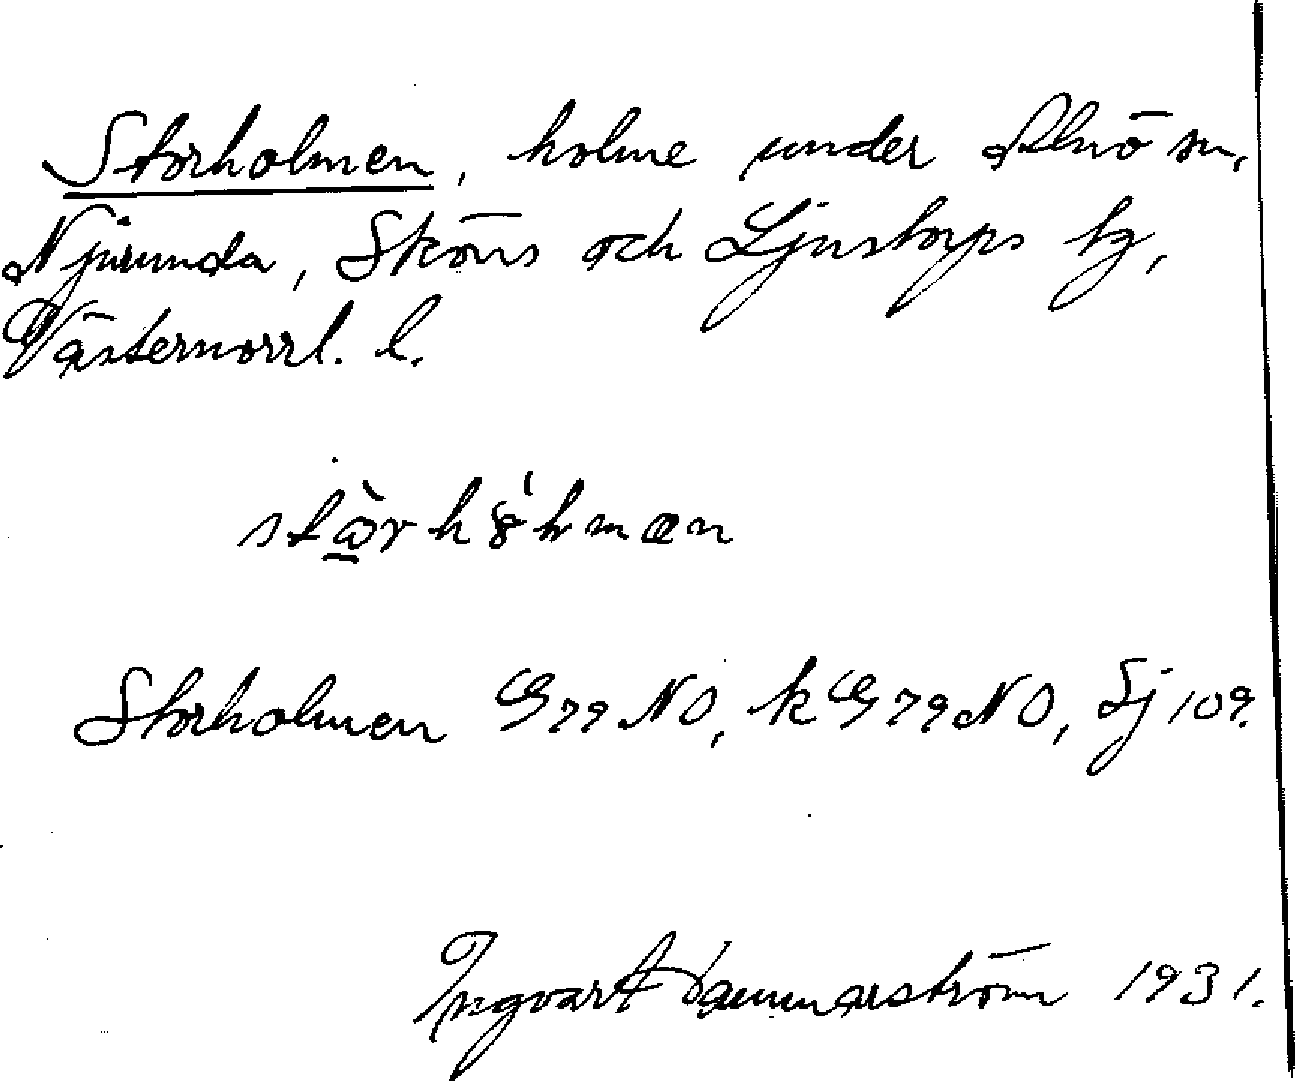 Storholmen, holme under Alnö sn,
Njurunda, Sköns och Ljustorps tg,
Västernorrl. l.
Storholmen G79 NO, kG79NO, Sj 109.
Ingvar Hammarström 1931.